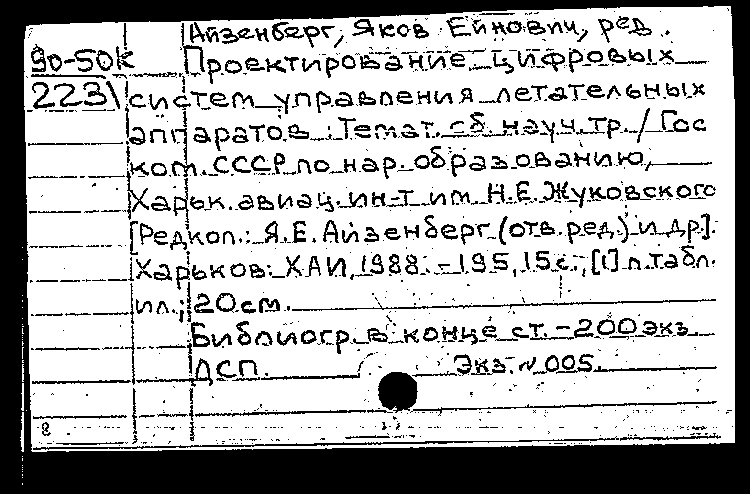 Айзенберг, Яков Ейнович, ред.
90-50к Проектирование цифровых
2231 систем управления летательных
аппаратов : Темат. сб. науч. тр. / Гос
ком. СССР по нар. образованию,
Харьк. авиац. ин-т им. Н.Е. Жуковского
[Редкол.: Я.Е. Айзенберг (отв. ред.) и др.].
Харьков: ХАИ, 1988. - 195, 15 с., [1] л. табл.
ил.; 20 см.
Библиогр. в конце ст. - 200 экз.
ДСП. Экз. № 005.
8